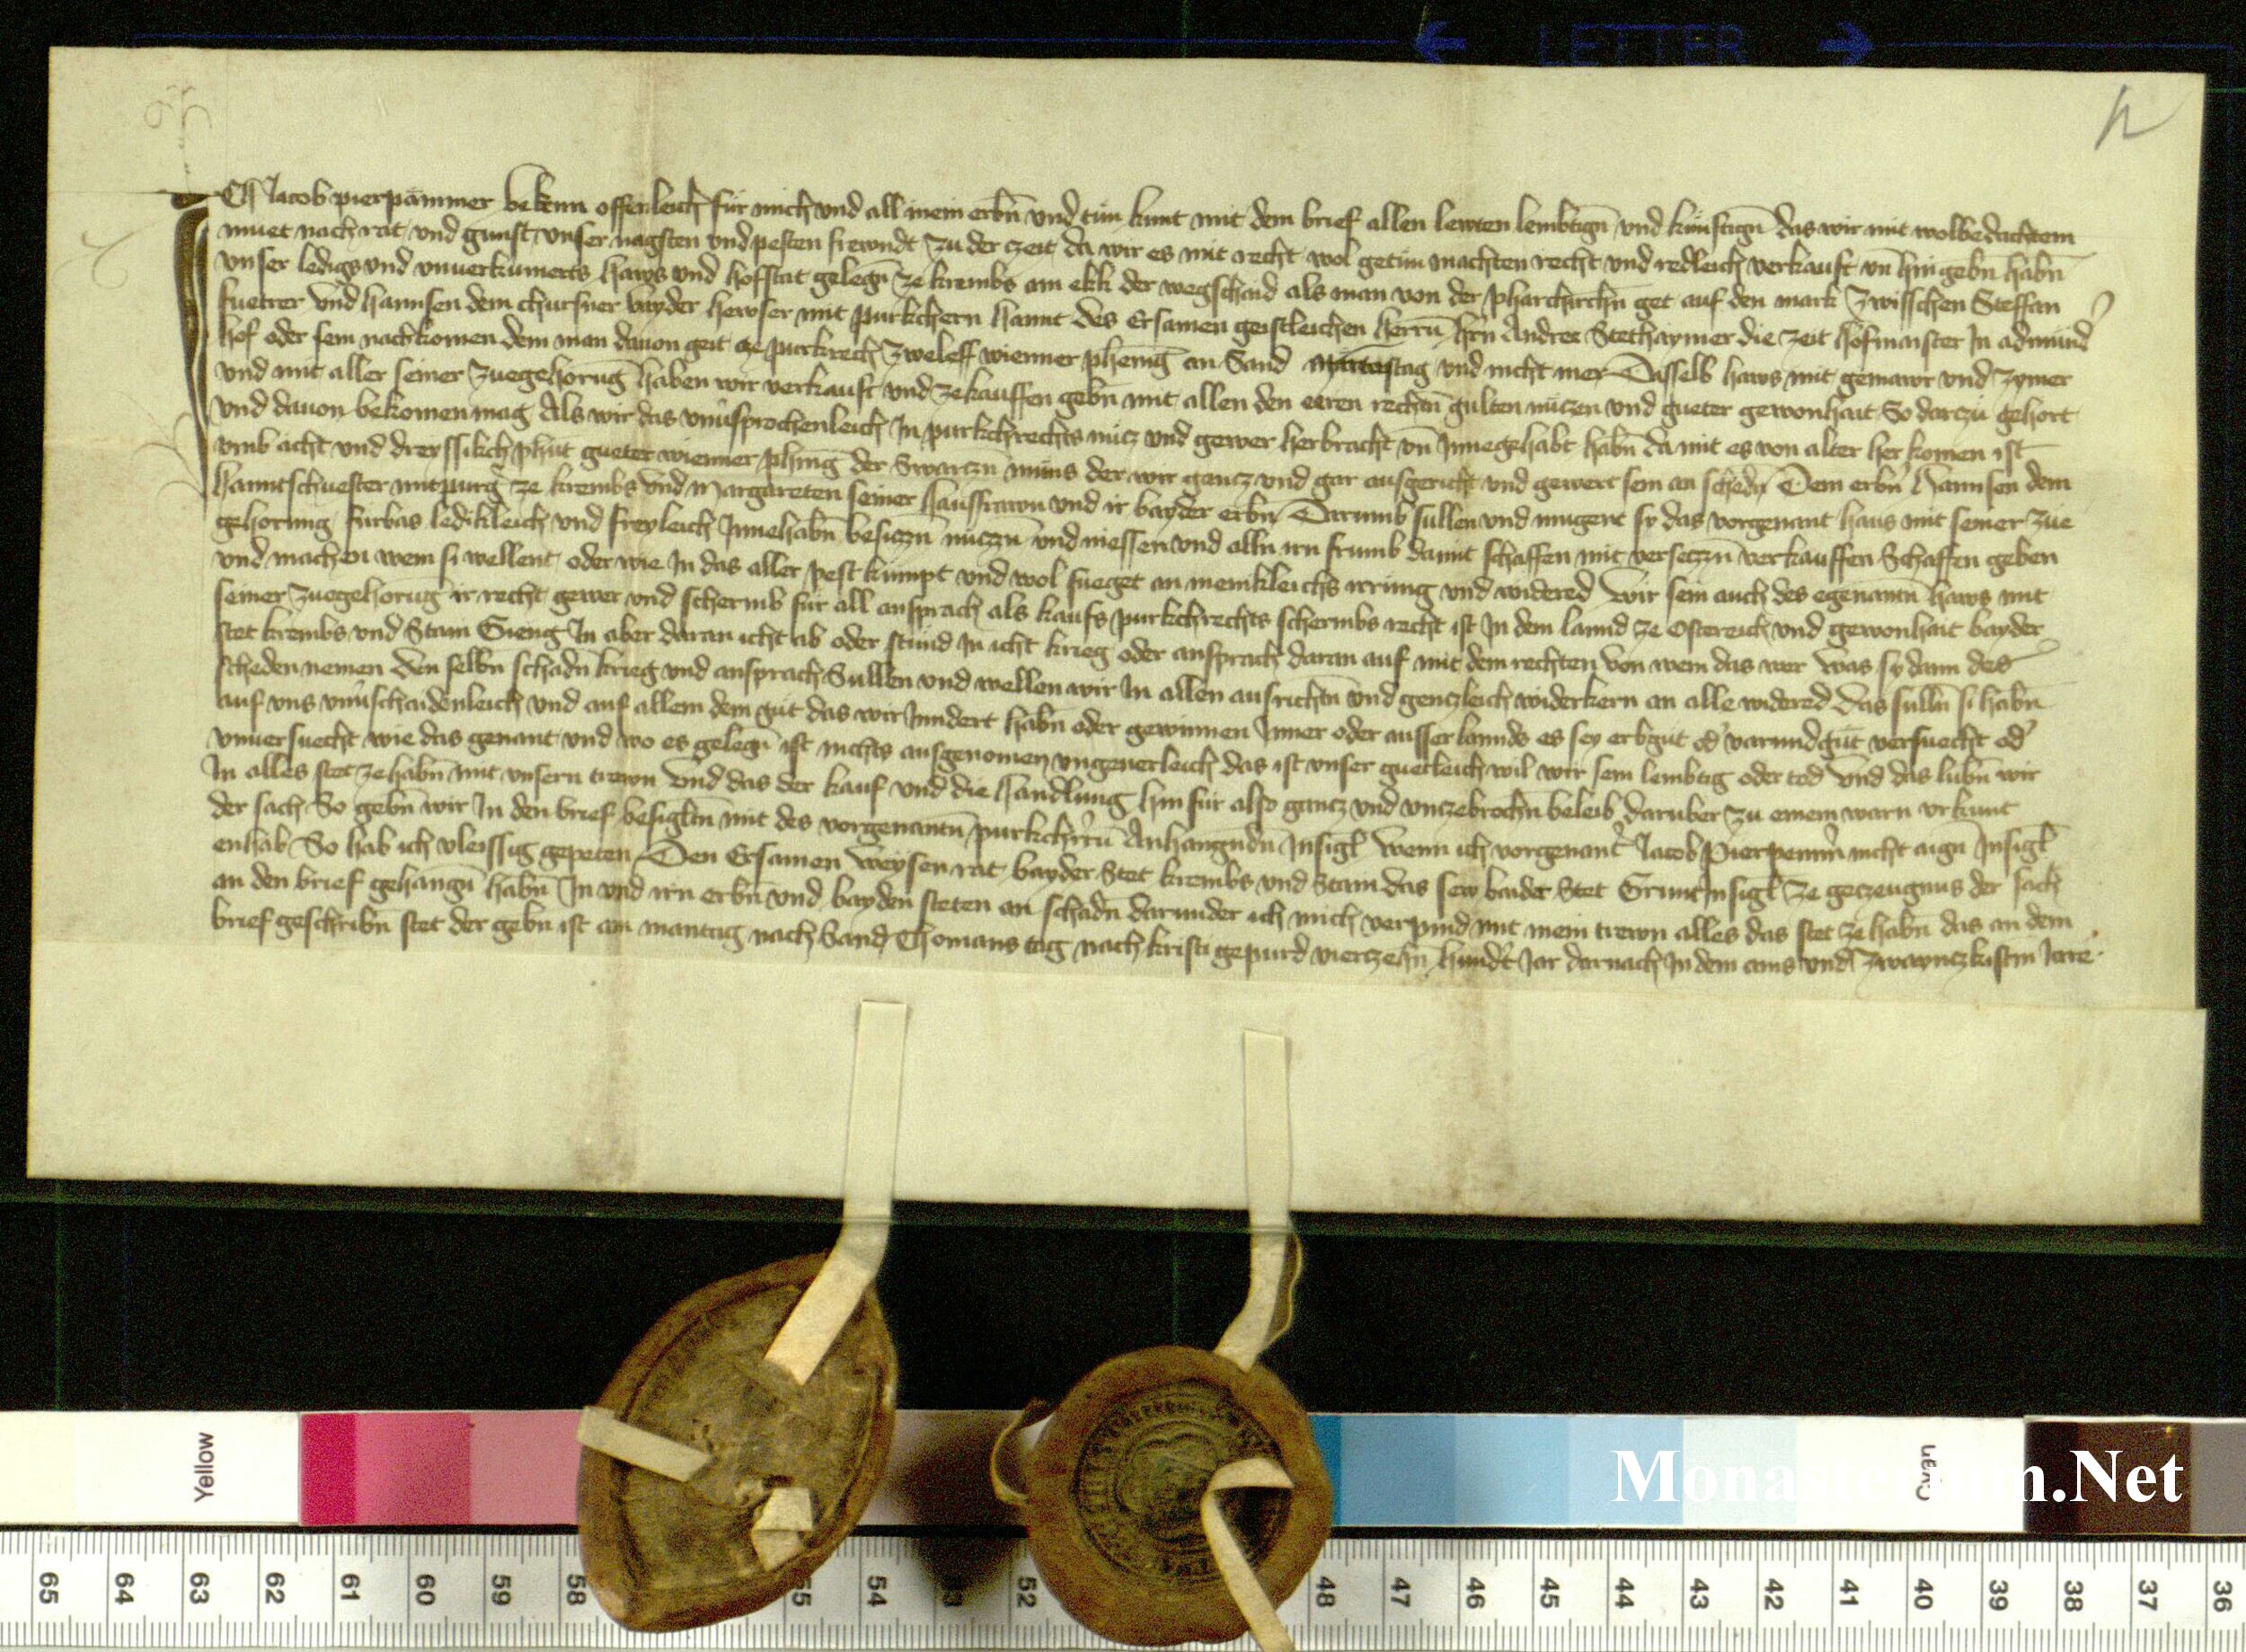 ← LETTER →
Ich Jacob pierpämmer bekenn offenleich für mich vnd all mein erbn̄ vnd tün kunt mit dem brief allen lewten lembtign̄ vnd künftign̄ das wir mit wolbedachtem
muet nach rat vnd gunst vnser nagsten vnd pesten frewndt zu der czeit da wir es mit recht wol getün machten recht vnd redleich verkauft vn̄ hin gebn̄ habn̄
vnser ledigs vnd vnuerkumerts haws vnd hofstat gelegn̄ ze krembs am ekk der wegschaid als man von der pharchirchn̄ get auf den mark zwisschen Steffan
fuetrer vnd hannsen dem churſner bayder hewser mit purkchern hannt des Ersamen geistleichen herrn̄ hrn̄ Andree Stethaymer die zeit hofmaister In admünd
hof oder sein nachkomen dem man dauon geit ze purkrech zweleff wienner pheniḡ an Sand tag vnd nicht mer Dasselb haws mit gemawr vnd zymer
vnd mit aller seiner zuegehorūg haben wir verkauft vnd ze kauffen gebn̄ mit allen den eeren rechtn̄ gulten nüczen vnd gueter gewonhait So darczü gehort
vnd dauon bekomen mag Als wir das vnu̓sprochenleich In purkchrechts nücz vnd gewer herbracht vn̄ Innegehabt habn̄ da mit es von alter her komen ist
vmb acht vnd dreyssikch phūt gueter wienner phinḡ der Swarczn̄ müns der wir gancz vnd gar ausgericht vnd gewert sein an schedn̄ Dem erbn̓ Hannsen dem
hanntschuester mitpurg̓ ze krembs vnd Margareten seiner hausfrawn vnd ir bayder erbn̄ Darumb sullen vnd mugent sy das vorgenant haus mit seiner zue
gehorung fürbas ledikleich vnd freyleich Innehabn̄ besiczn̄ nuczn̄ vnd niessen vnd alln̄ irn frumb damit schaffen mit versetzn̄ verkauffen Schaffen geben
vnd machen wem si wellent oder wie In das aller pest kümpt vnd wol fueget an menikleichs irrüng vnd widered Wir sein auch des egenantn̄ haws mit
seiner zuegehorūg ir recht gewer vnd schermb für all ansprach als kaufs purkchrechts schermbs recht ist In dem lannd ze Ostereich vnd gewonhait bayder
stet krembs vnd Stain Gieng In aber daran icht ab oder stünd In icht krieg oder ansprach daran auf mit dem rechten von wem das wer was sy dann des
scheden nemen den selbn̄ schadn̄ krieg vnd ansprach Sullen vnd wellen wir In allen ausrichtn̄ vnd genczleich widerkern an alle widered Das sulln̄ si habn̄
auf vns vnu̓schaidenleich vnd auf allem dem gut das wir Inndert habn̄ oder gewinnen Inner oder ausser lannds es sey erbgut od̓ varundgüt versuecht od̓
vnuersuecht wie das genant vnd wo es gelegn̄ ist nichts ausgenomen vngeuerleich das ist vnser guetleich wil wir sein lembtig oder tod Vnd das lubn̄ wir
In alles stet ze habn̄ mit vnsern trewn Vnd das der kauf vnd die handlung hin für also gancz vnd vnczebrochn̄ beleib daruber zu einem warn vrkunt
der sach So gebn̄ wir In den brief besigltn̄ mit des vorgenantn̄ purkchr̓rn̄ Anhangūdn̄ Insigl̄ Wenn ich vorgenant̓ Jacob Pierpemm̓ nicht aign̄ Insigl̄
enhab So hab ich vleissig gepeten Den Ersamen Weysen rat bayder Stet krembs vnd Stain das sew baider Stet Grunt Insigl̄ ze geczeugnus der sach
an den brief gehangn̄ habn̄ In vnd irn erbn̄ vnd bayden steten an schadn̄ darunder ich mich verpind mit mein trewn alles das stet ze habn̄ das an dem
brief geschribn̄ stet der gebn̄ ist am mantag nach Sand Thomans tag nach kristi gepurd vierczehn̄ hundt̓ Jar darnach In dem ains vnd zwainczkistm̄ Jare
Yellow
Cyan
Monasterium.Net
65 64 63 62 61 60 59 58 55 54 53 52 48 47 46 45 44 43 42 41 40 39 38 37 36